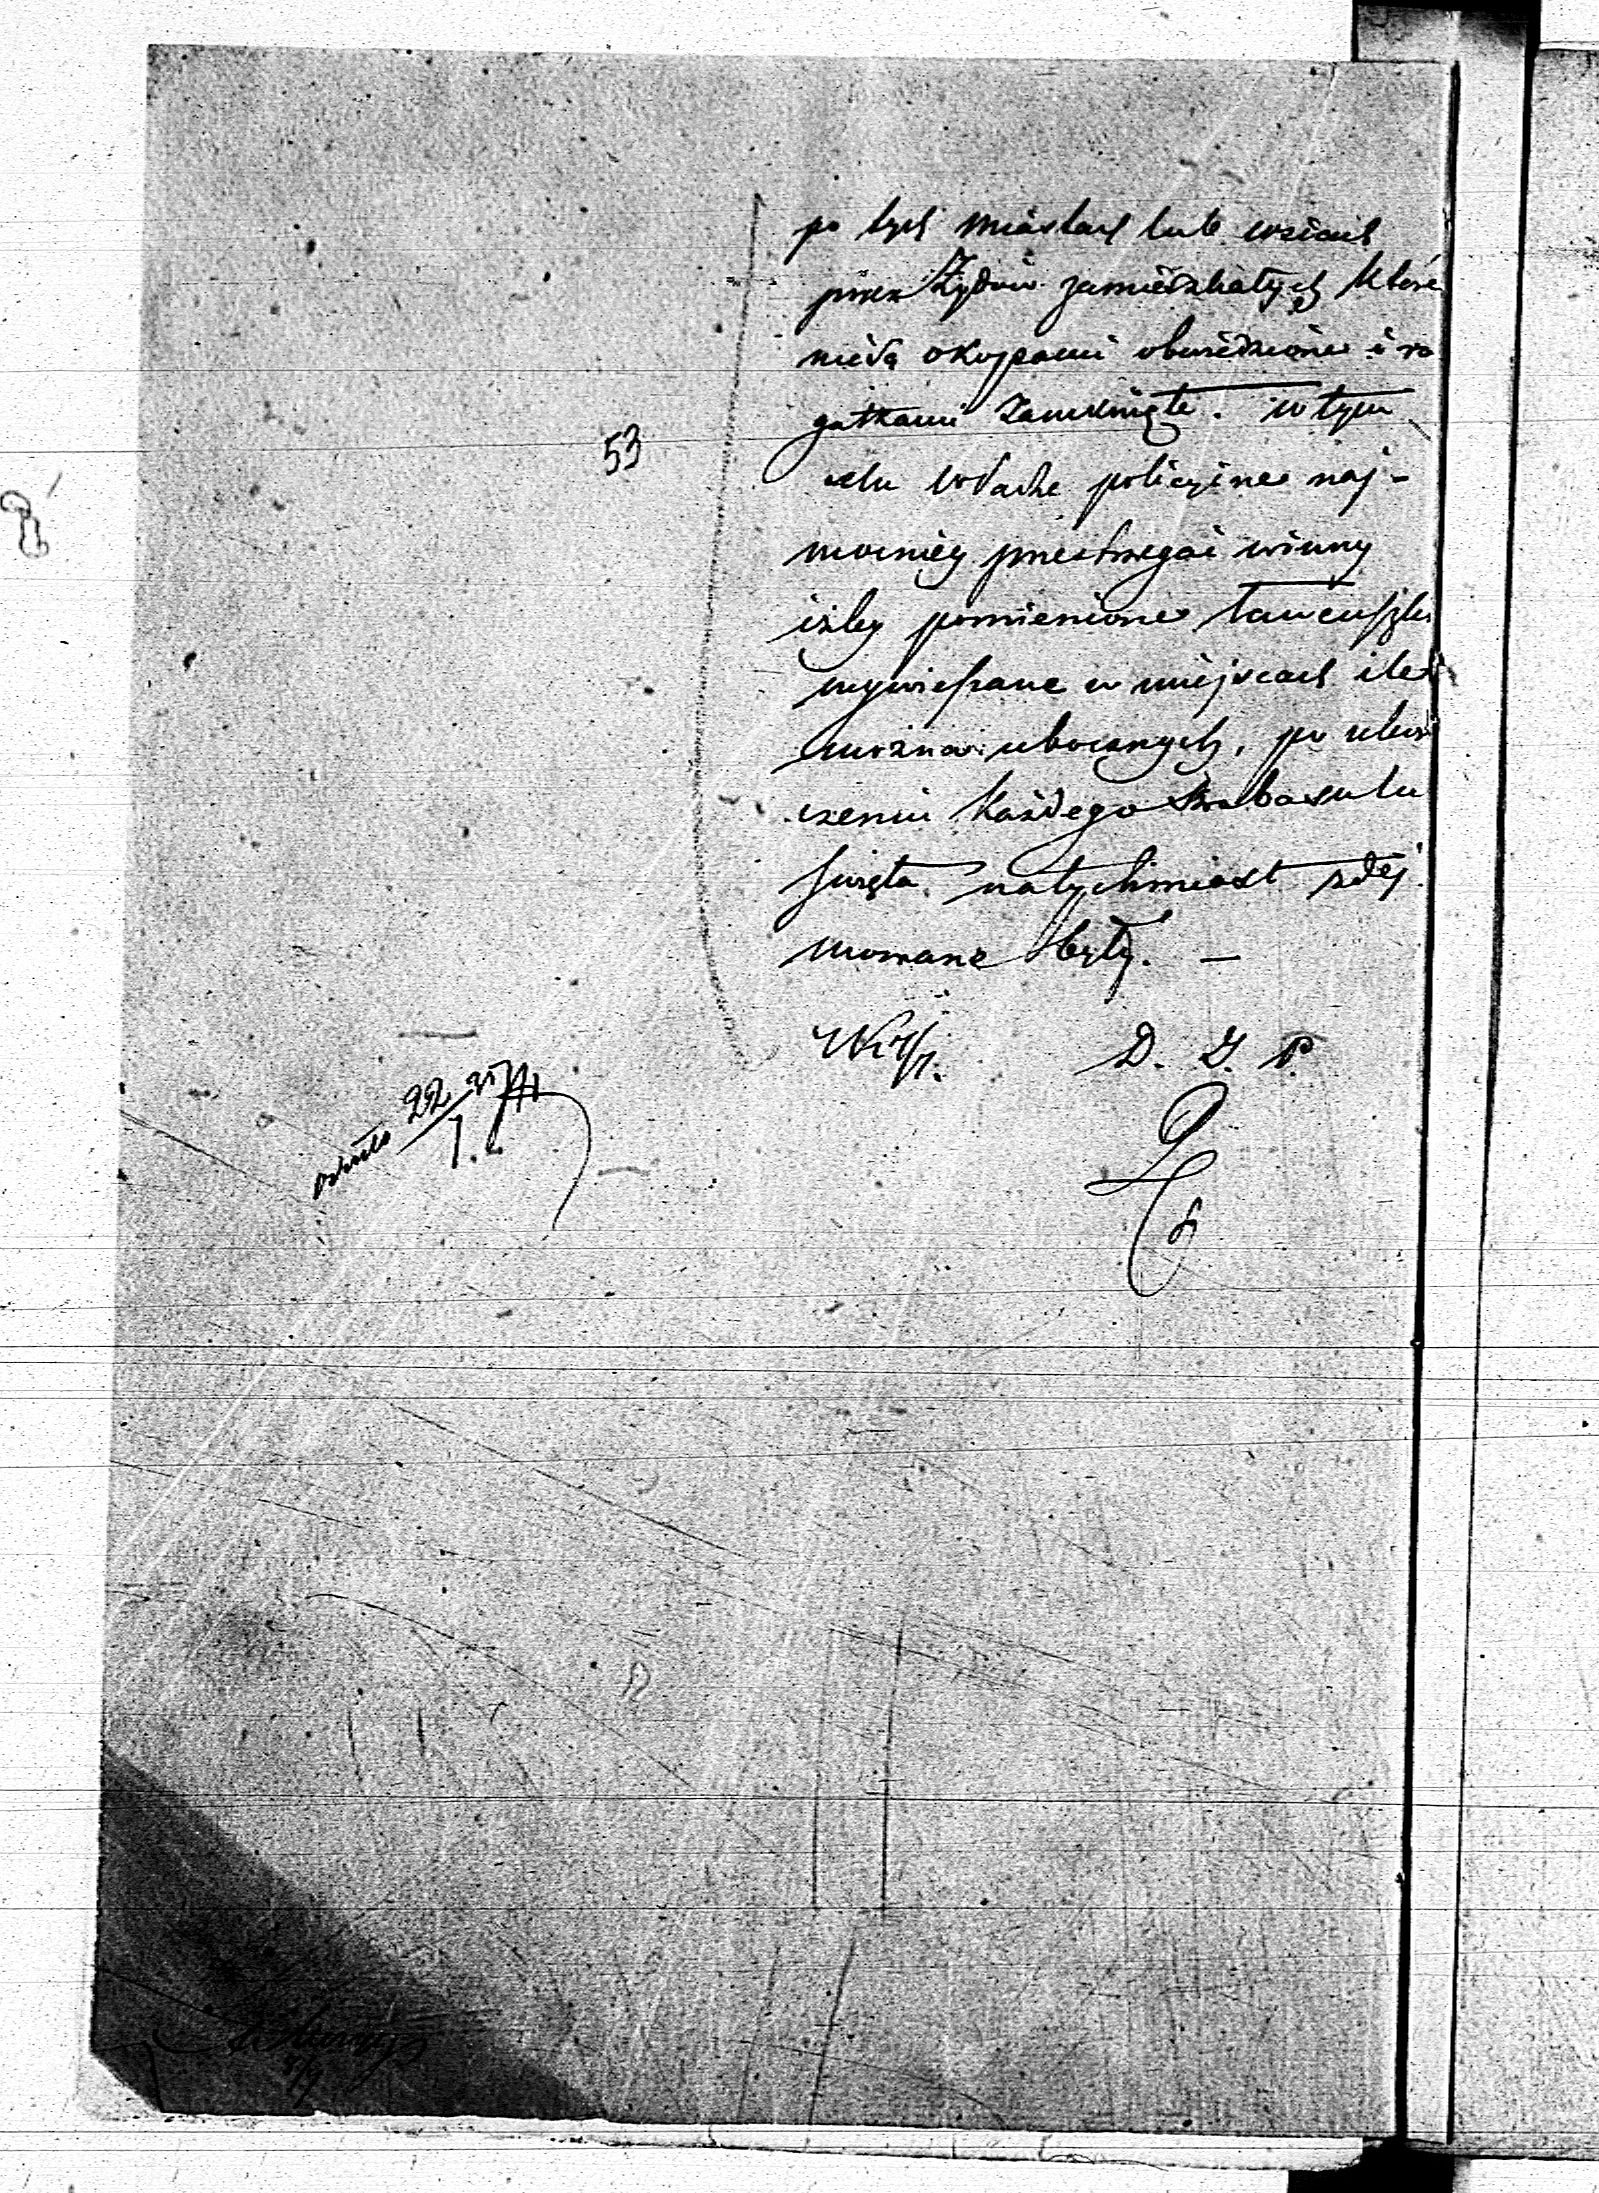 po tych miastach lub wsiach
przez Żydów zamieszkałych które
niesą okopami obwiedzione i ro
gatkami zamknięte. W tym
celu Władze policyine naj-
mocniey przestrzegać winny
iżby pomienione łańcuszki
wywieszane w miejscach ile
można ubocznych, po ukoń
czeniu każdego szabasu lub
święta natychmiast zdej
mowane były. —
D. J. P.
53
22